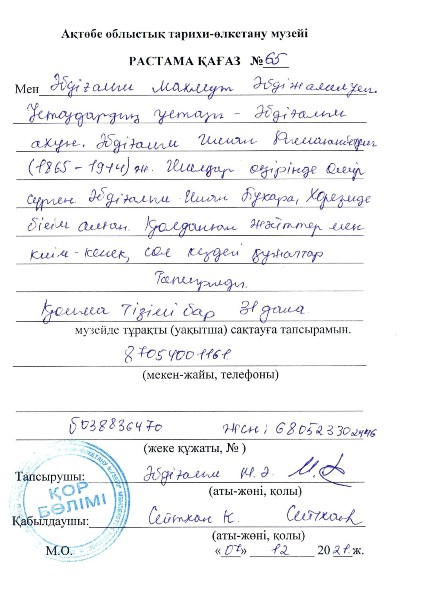 Ақтөбе облыстық тарихи-өлкетану музейі
РАСТАМА ҚАҒАЗ №65
Мен Әбдіғалым Махмут Әбдіжалилұлы.
Ұстаздардың ұстазы - Әбдіғалым
ахун. Әбдіғалым Ишан
(1865-1944) ж. Ишандар өңірінде өмір
сүрген Әбдіғалым Ишан Бухара, Хорезмде
білім алған. Қолданған жәйттер мен
киім-кешек, сол кездегі құжаттар
Тапсырылды.
Қосымша Тізімі бар 31 дана
музейде тұрақты (уақытша) сақтауға тапсырамын.
87054001161.
(мекен-жайы, телефоны)
б038836470 ЖСН: 680523302446
(жеке құжаты, № )
Тапсырушы: Әбдіғалым М.Ә.
(аты-жөні, қолы)
ҚОР БӨЛІМІ
Қабылдаушы: Сейтхан К. Сейтхан
(аты-жөні, қолы)
М.О. «07» 12 2021 ж.